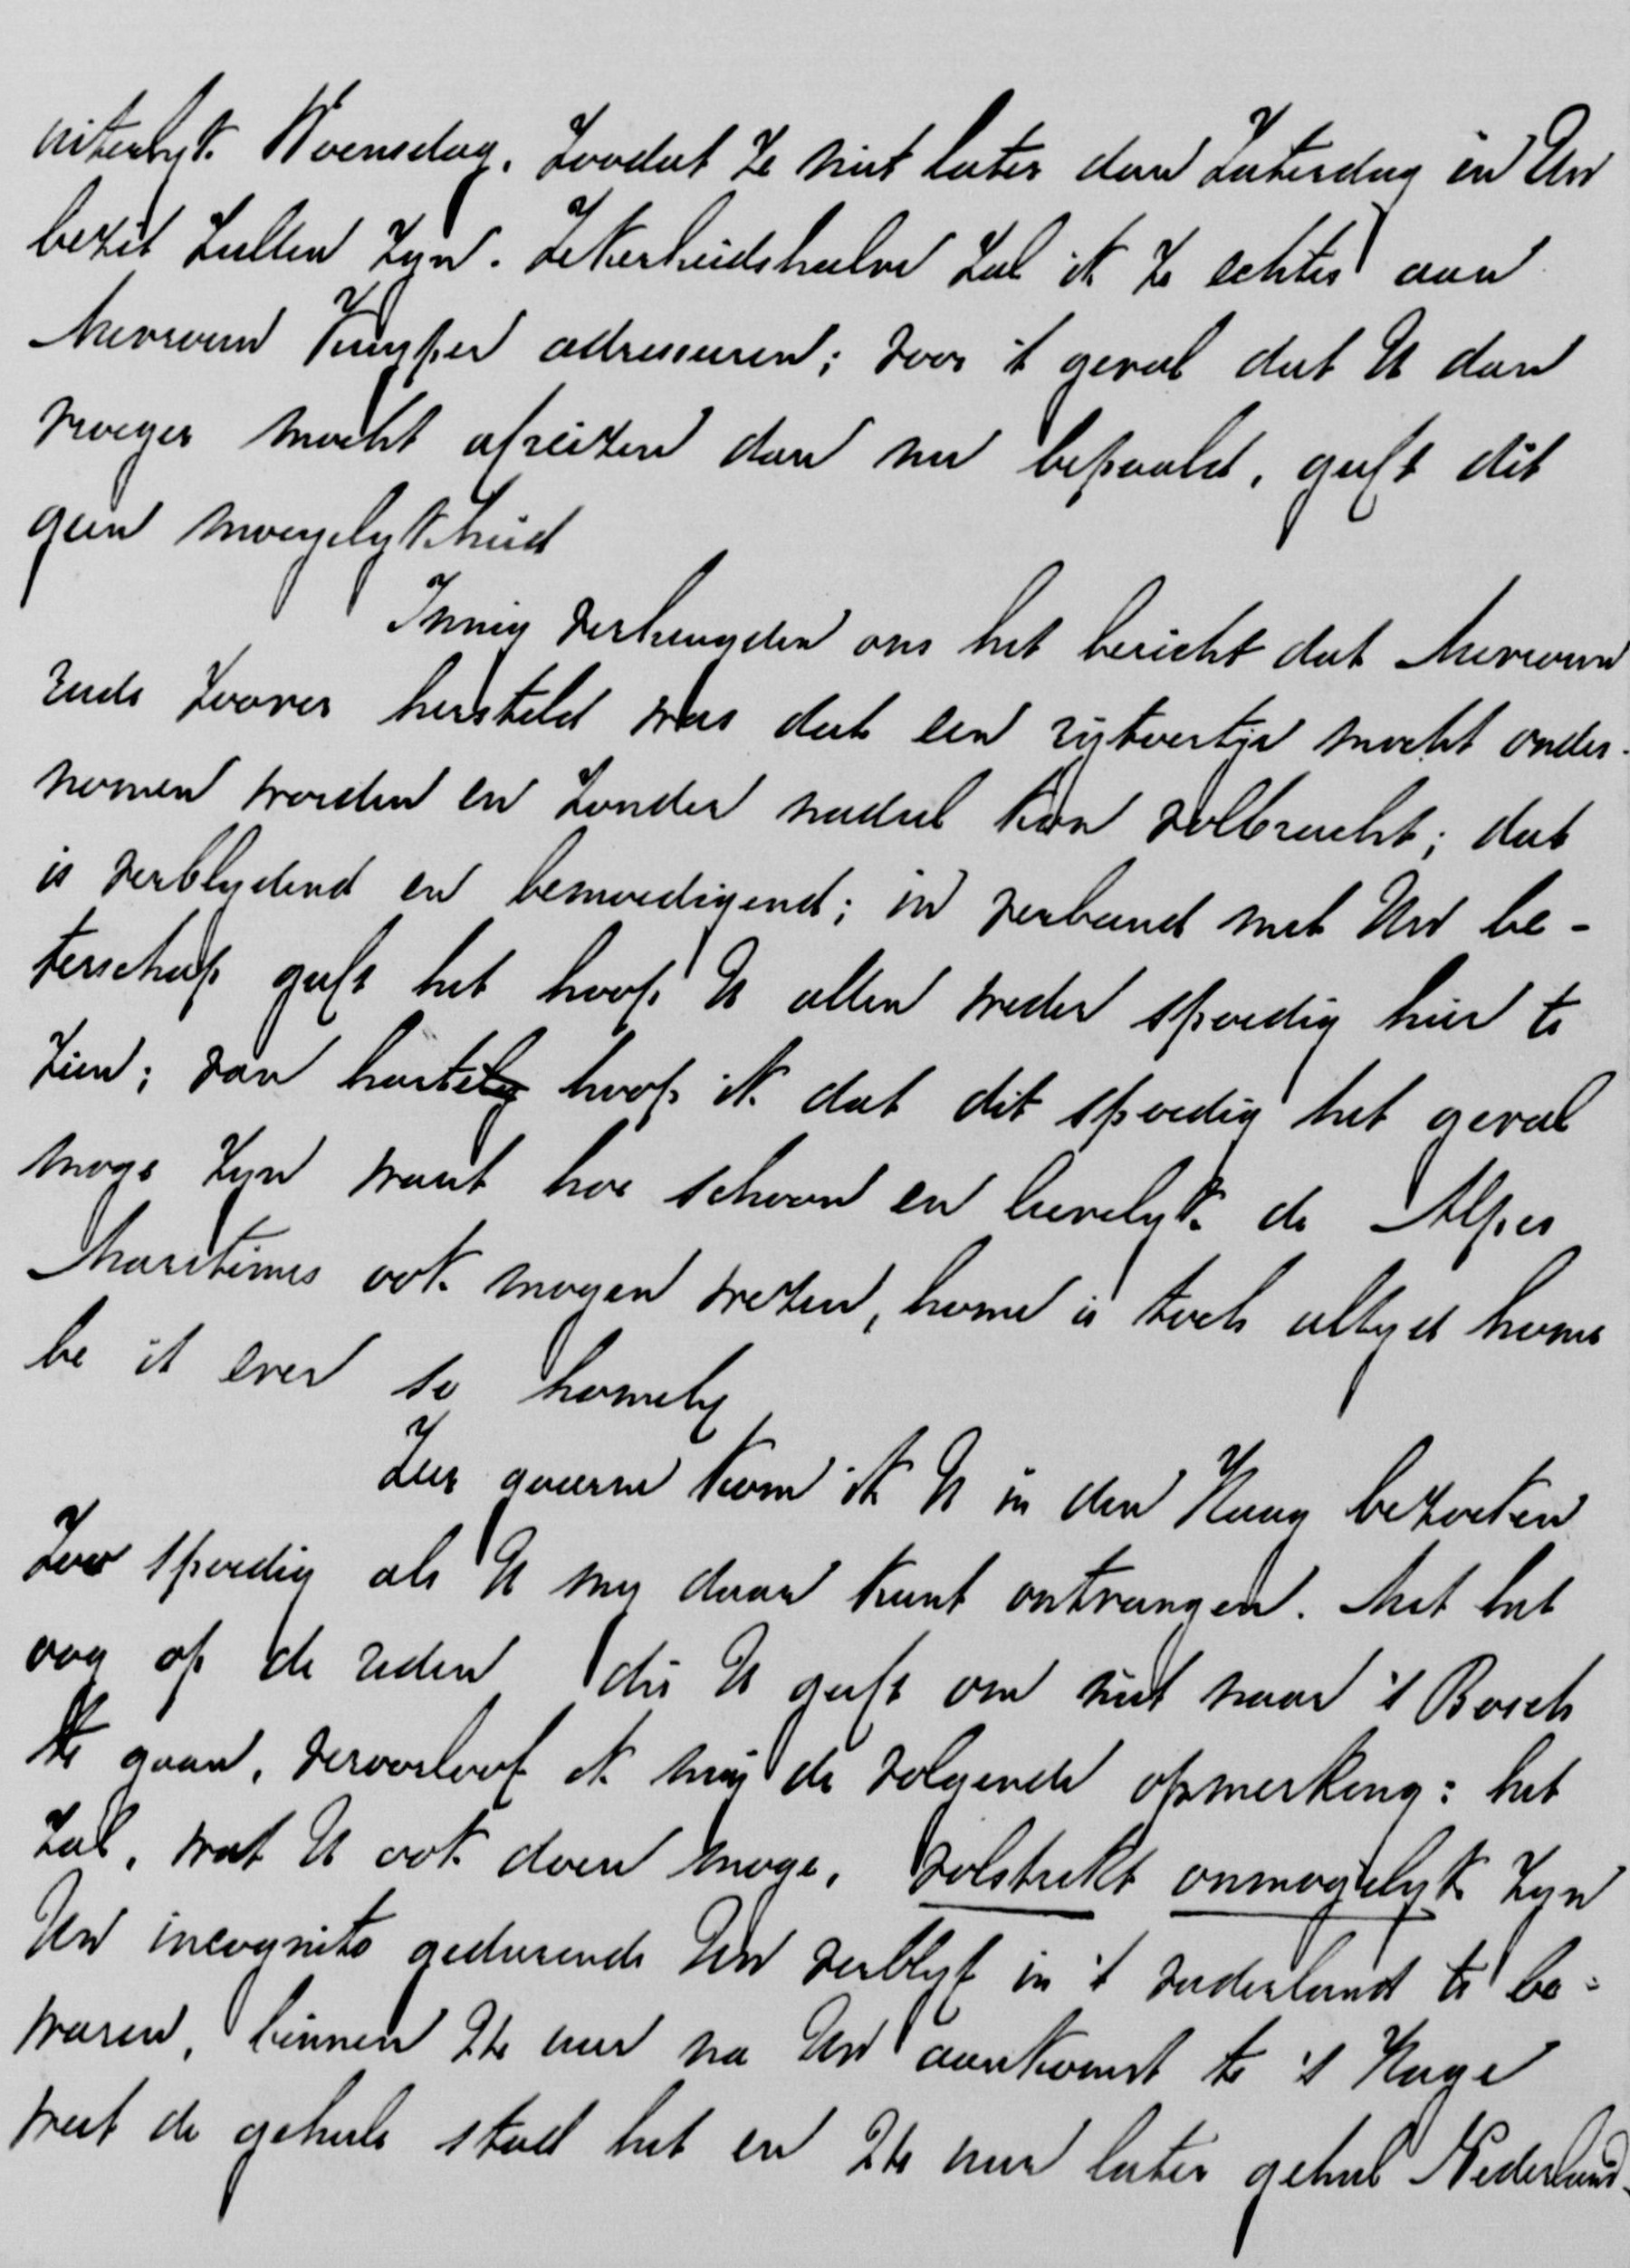 uiterlyk Woensdag. Zoodat ze niet later dan Zaterdag in Uw
bezit zullen zyn. Zekerheidshalve zal ik ze echter aan
Mevrouw adresseeren; voor 't geval dat U dan
vroeger mocht afreizen dan nu bepaald, geeft dit
geen moeyelykheid
Innig verheugden ons het bericht dat Mevrouw
reeds zoover hersteld was dat een rijtoertje mocht onder-
nomen worden en zonder nadeel kon volbracht; dat
is verblydend en bemoedigend; in verband met Uw be-
terschap geeft het hoop U allen weder spoedig hier te
zien; van harte hoop ik dat dit spoedig het geval
moge zyn want hoe schoon en heerelyk de Alpes
Maritimes ook mogen wezen, home is toch altyd home
be it ever so homely
Zeer gaarne kom ik U in den Haag bezoeken
Zoo spoedig als U my daar kunt ontvangen. Met het
oog op de reden die U geeft om niet naar 's Bosch
te gaan, veroorloof ik mij de volgende opmerking: het
zal, wat U ook doen moge, volstrekt onmogelyk zyn
Uw incognito gedurende Uw verblyf in 't vaderland te be-
waren, binnen 24 uur na Uw aankomst te 's Hage
weet de geheele stad het en 24 uur later geheel Nederland-